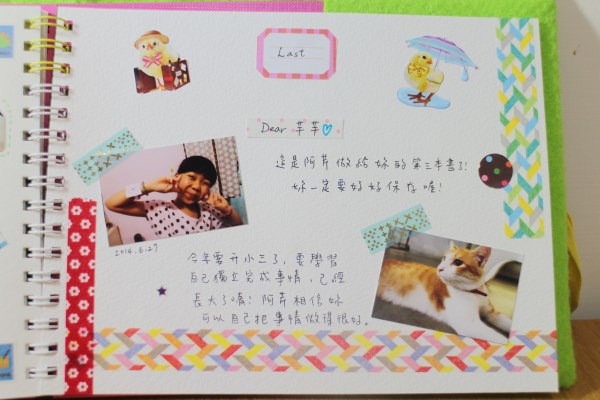 Last
Dear 芊芊
這是阿芹做給妳的第三本書了!
妳一定要好好保存喔!
2016.6.27
今年要升小三了,要學習
自己獨立完成事情,已經
長大了喔!阿芹相信妳
可以自己把事情做得很好。